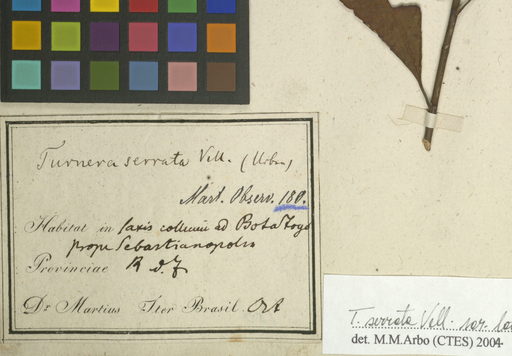 Turnera serrata Vell. (Urban)
Mart. Observ. 180.
Habitat in saxis collium ad Botafogo
prope Sebastianopolis
Provinciae R d. J
Dr Martius Iter Brasil. Oct
T. serrata Vell. var.
det. M.M.Arbo (CTES) 2004